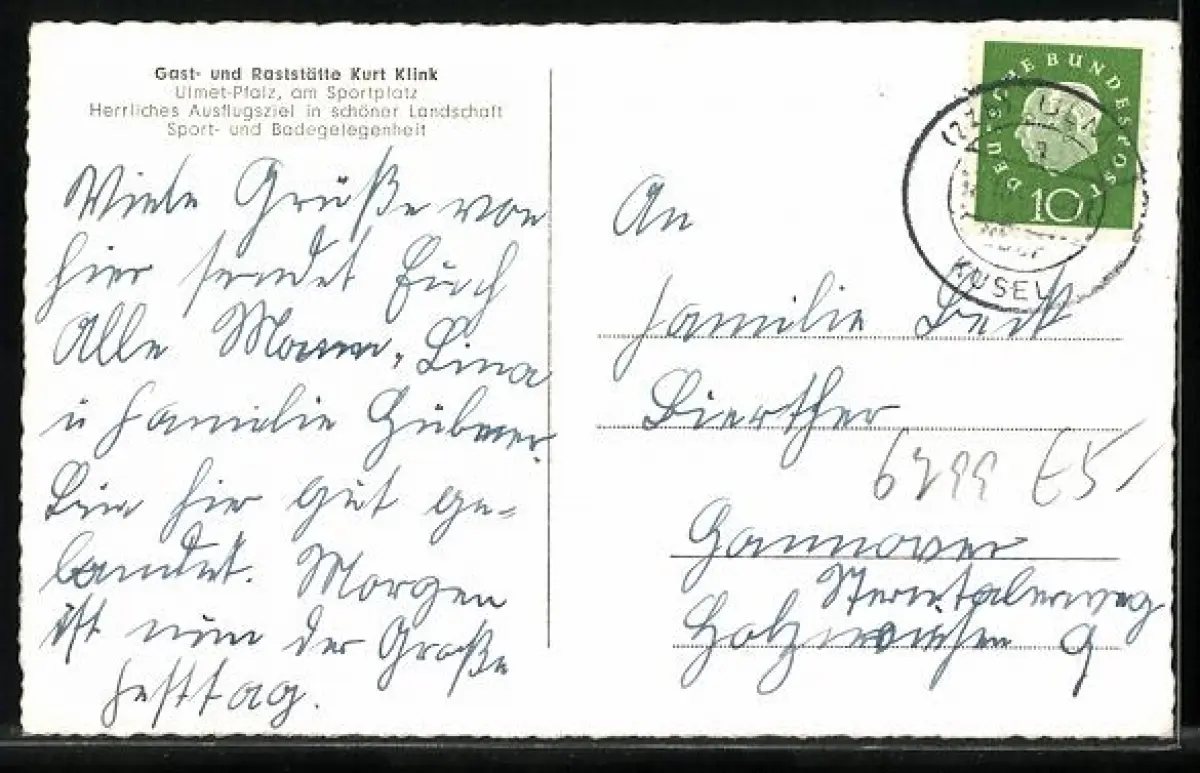 Gast- und Raststätte Kurt Klink
Ulmet-Pfalz, am Sportplatz
Herrliches Ausflugsziel in schöner Landschaft
Sport- und Badegelegenheit
Viele Grüße von
hier sendet Euch
Alle Mann, Lina
u Familie Hübner.
Bin hier gut ge=
landet. Morgen
ist nun der Große
Festtag.
DEUTSCHE BUNDESPOST
10
(22b)
KUSEL
An
Familie
Hannover
Sterntalerweg
9
6799 E5